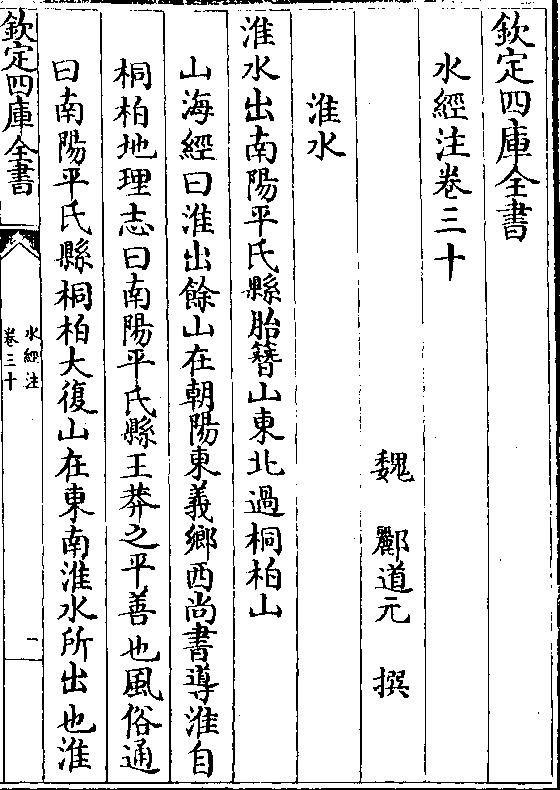 欽定四庫全書
水經注卷三十
魏 酈道元 撰
淮水
淮水出南陽平氏縣胎簪山東北過桐柏山
山海經曰淮出餘山在朝陽東義鄉西尚書導淮自
桐柏地理志曰南陽平氏縣王莽之平善也風俗通
曰南陽平氏縣桐柏大復山在東南淮水所出也淮
欽定四庫全書
水經注
卷三十
一